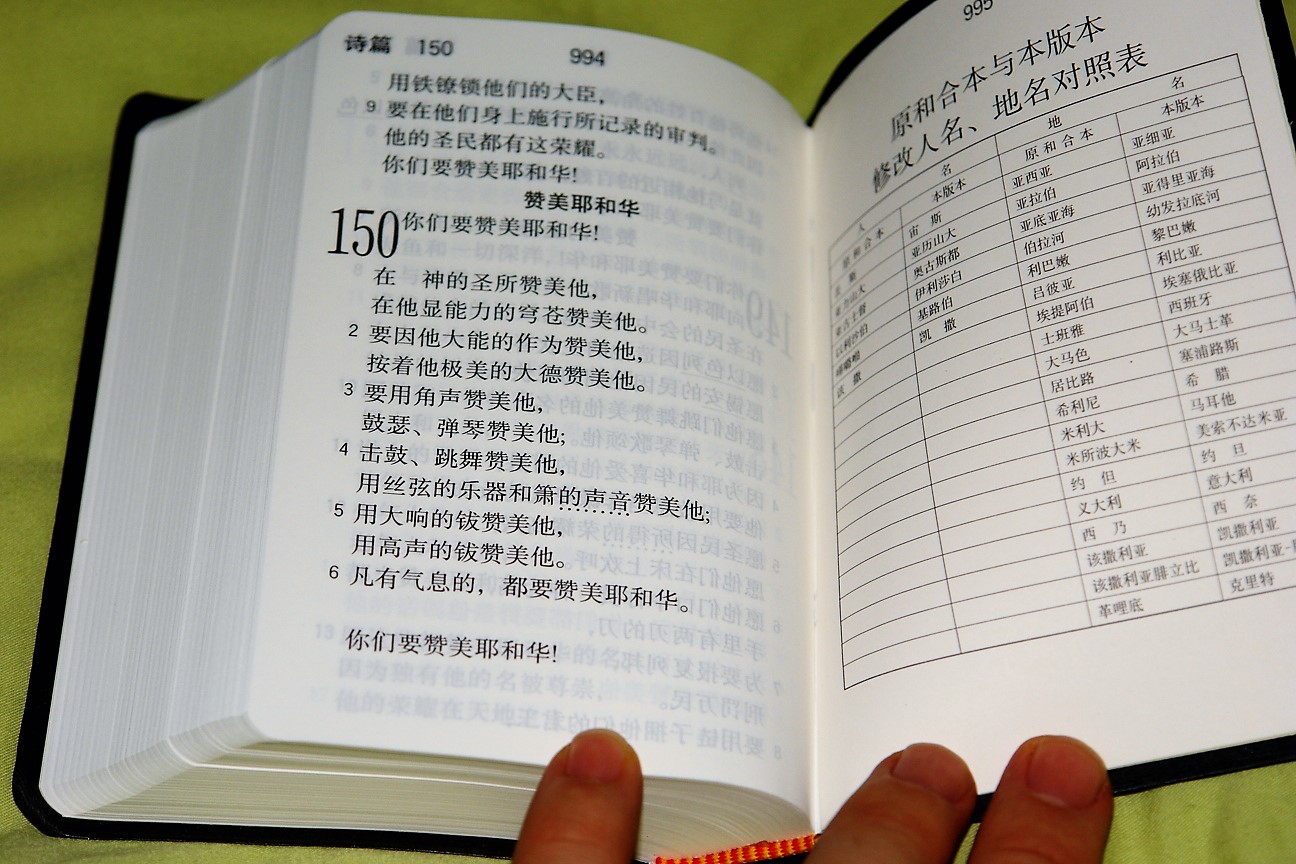 诗篇 150
994
用铁镣锁他们的大臣，
9 要在他们身上施行所记录的审判。
他的圣民都有这荣耀。
你们要赞美耶和华！
赞美耶和华
150 你们要赞美耶和华！
在　神的圣所赞美他，
在他显能力的穹苍赞美他。
2 要因他大能的作为赞美他，
按着他极美的大德赞美他。
3 要用角声赞美他，
鼓瑟、弹琴赞美他；
4 击鼓、跳舞赞美他，
用丝弦的乐器和箫的声音赞美他；
5 用大响的钹赞美他，
用高声的钹赞美他。
6 凡有气息的，都要赞美耶和华。
你们要赞美耶和华！
995
原和合本与本版本
修改人名、地名对照表
人 名 地 名
原和合本 本版本 原和合本 本版本
丢 斯 宙 斯 亚西亚 亚细亚
亚力山大 亚历山大 亚拉伯 阿拉伯
亚古士督 奥古斯都 亚底亚海 亚得里亚海
以利沙伯 伊利莎白 伯拉河 幼发拉底河
基路伯 利巴嫩 黎巴嫩
该 撒 凯 撒 吕彼亚 利比亚
埃提阿伯 埃塞俄比亚
士班雅 西班牙
大马色 大马士革
居比路 塞浦路斯
希利尼 希 腊
米利大 马耳他
米所波大米 美索不达米亚
约 但 约 旦
义大利 意大利
西 乃 西 奈
该撒利亚 凯撒利亚
该撒利亚腓立比 凯撒利亚-
革哩底 克里特